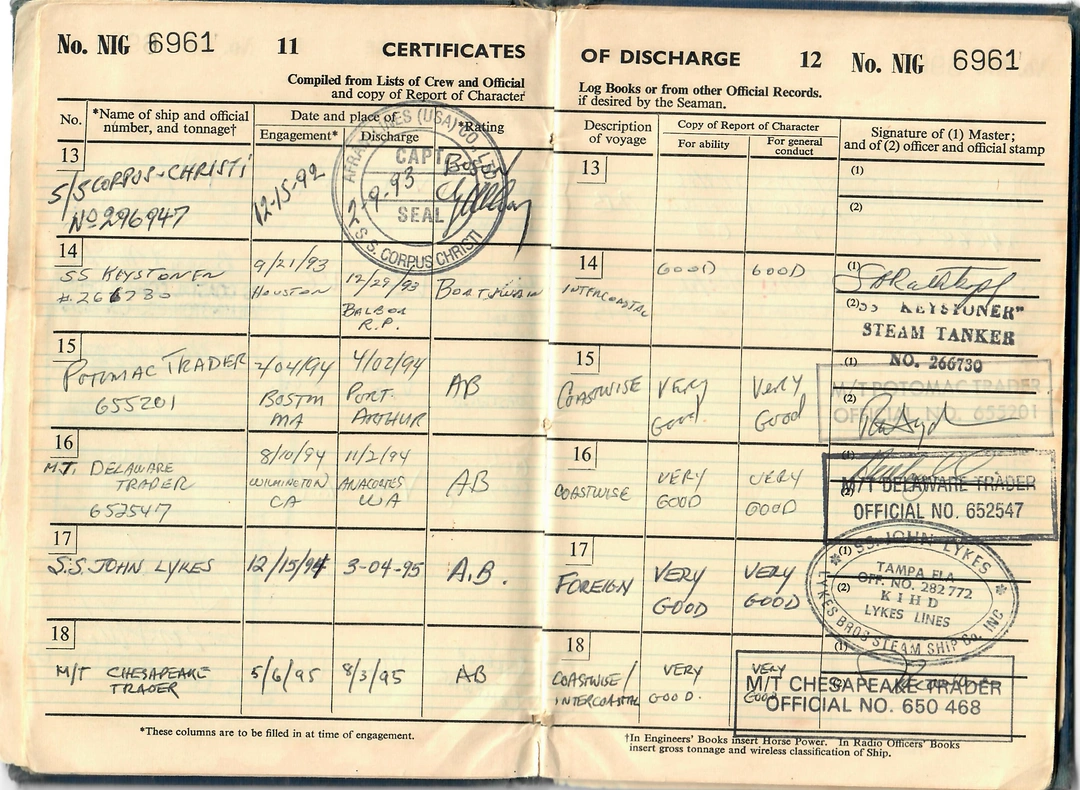 No. NIG 6961 11 CERTIFICATES
Compiled from Lists of Crew and Official
and copy of Report of Character
No. *Name of ship and official number, and tonnage† Date and place of *Rating
Engagement* Discharge
13
S/S CORPUS-CHRISTI
No 296947
12-15-92
2-9-93
Bos
AFRAM LINES (USA) CO. LTD
CAPT
SEAL
S.S. CORPUS CHRISTI
14
SS KEYSTONER
#266730
9/21/93
HOUSTON
12/29/93
BALBOA
R.P.
BOATSWAIN
15
POTOMAC TRADER
655201
2/04/94
BOSTON
MA
4/02/94
PORT
ARTHUR
AB
16
M.T. DELAWARE
TRADER
652547
8/10/94
WILMINGTON
CA
11/2/94
ANACORTES
WA
AB
17
S.S. JOHN LYKES
12/15/94
3-04-95
A.B.
18
M/T CHESAPEAKE
TRADER
5/6/95
8/3/95
AB
*These columns are to be filled in at time of engagement.
OF DISCHARGE 12 No. NIG 6961
Log Books or from other Official Records.
if desired by the Seaman.
Description of voyage
Copy of Report of Character
For ability
For general conduct
Signature of (1) Master;
and of (2) officer and official stamp
13
(1)
(2)
14
INTERCOASTAL
GOOD
GOOD
(1)
(2)
SS KEYSTONER"
STEAM TANKER
NO. 266730
15
COASTWISE
VERY
Good
VERY
Good
(1)
M/T POTOMAC TRADER
(2)
OFFICIAL NO. 655201
16
COASTWISE
VERY
GOOD
VERY
GOOD
(1)
M/T DELAWARE TRADER
(2)
OFFICIAL NO. 652547
17
FOREIGN
VERY
GOOD
VERY
GOOD
(1)
(2)
SS. JOHN LYKES
TAMPA FLA
OFF. NO. 282772
KIHD
LYKES LINES
LYKES BROS STEAM SHIP Co. INC
18
COASTWISE/
INTERCOASTAL
VERY
GOOD.
VERY
GOOD
(1)
M/T CHESAPEAKE TRADER
OFFICIAL NO. 650 468
†In Engineers' Books insert Horse Power. In Radio Officers' Books
insert gross tonnage and wireless classification of Ship.